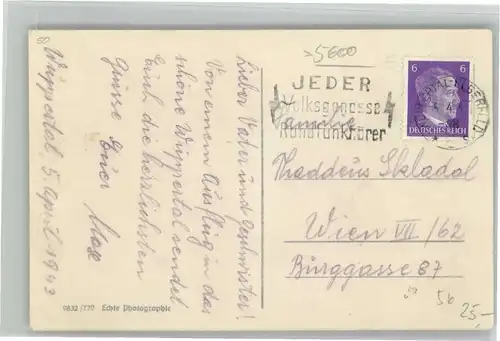 5600
JEDER
Volksgenosse
Rundfunkhörer
6
6
DEUTSCHES REICH
WUPPERTAL-ELBERFELD
Familie
Thaddeus Skladal
Wien VII/62
Burggasse 87
56
25,-
Wuppertal, 5. April 1943
Lieber Vater und Geschwister!
Von einem Ausflug in das
schöne Wuppertal sendet
Euch die herzlichsten
Grüsse Euer
9832/170 Echte Photographie